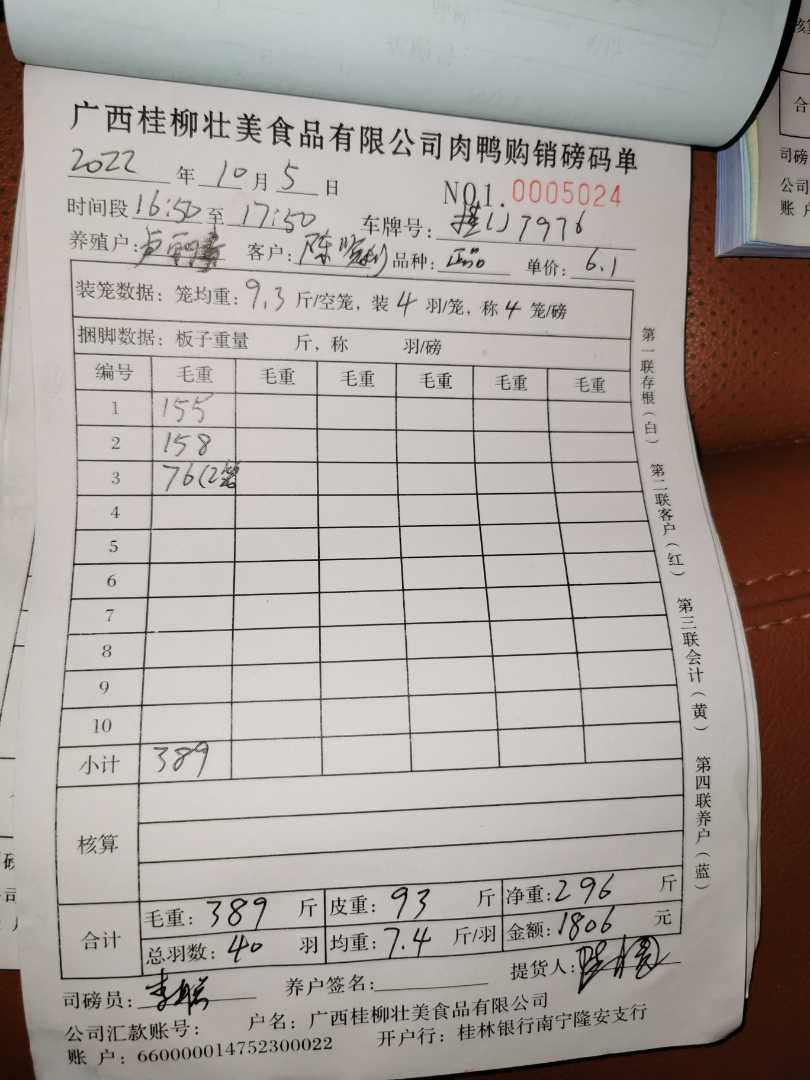 广西桂柳壮美食品有限公司肉鸭购销磅码单
2022年10月5日 NO1.0005024
时间段16:50至17:50 车牌号:桂 7976
养殖户:卢 客户:陈 品种:正品 单价:6.1
装笼数据:笼均重:9.3斤/空笼,装4羽/笼,称4笼/磅
捆脚数据:板子重量 斤,称 羽/磅
编号 毛重 毛重 毛重 毛重 毛重 毛重
1 155
2 158
3 76(2笼
4
5
6
7
8
9
10
小计 389
核算
合计 毛重:389斤 皮重:93斤 净重:296斤
总羽数:40羽 均重:7.4斤/羽 金额:1806元
司磅员:李 养户签名: 提货人:陈
公司汇款账号: 户名:广西桂柳壮美食品有限公司
账 户:660000014752300022 开户行:桂林银行南宁隆安支行
第一联存根(白)
第二联客户(红)
第三联会计(黄)
第四联养户(蓝)
合
司磅
公司
账 户